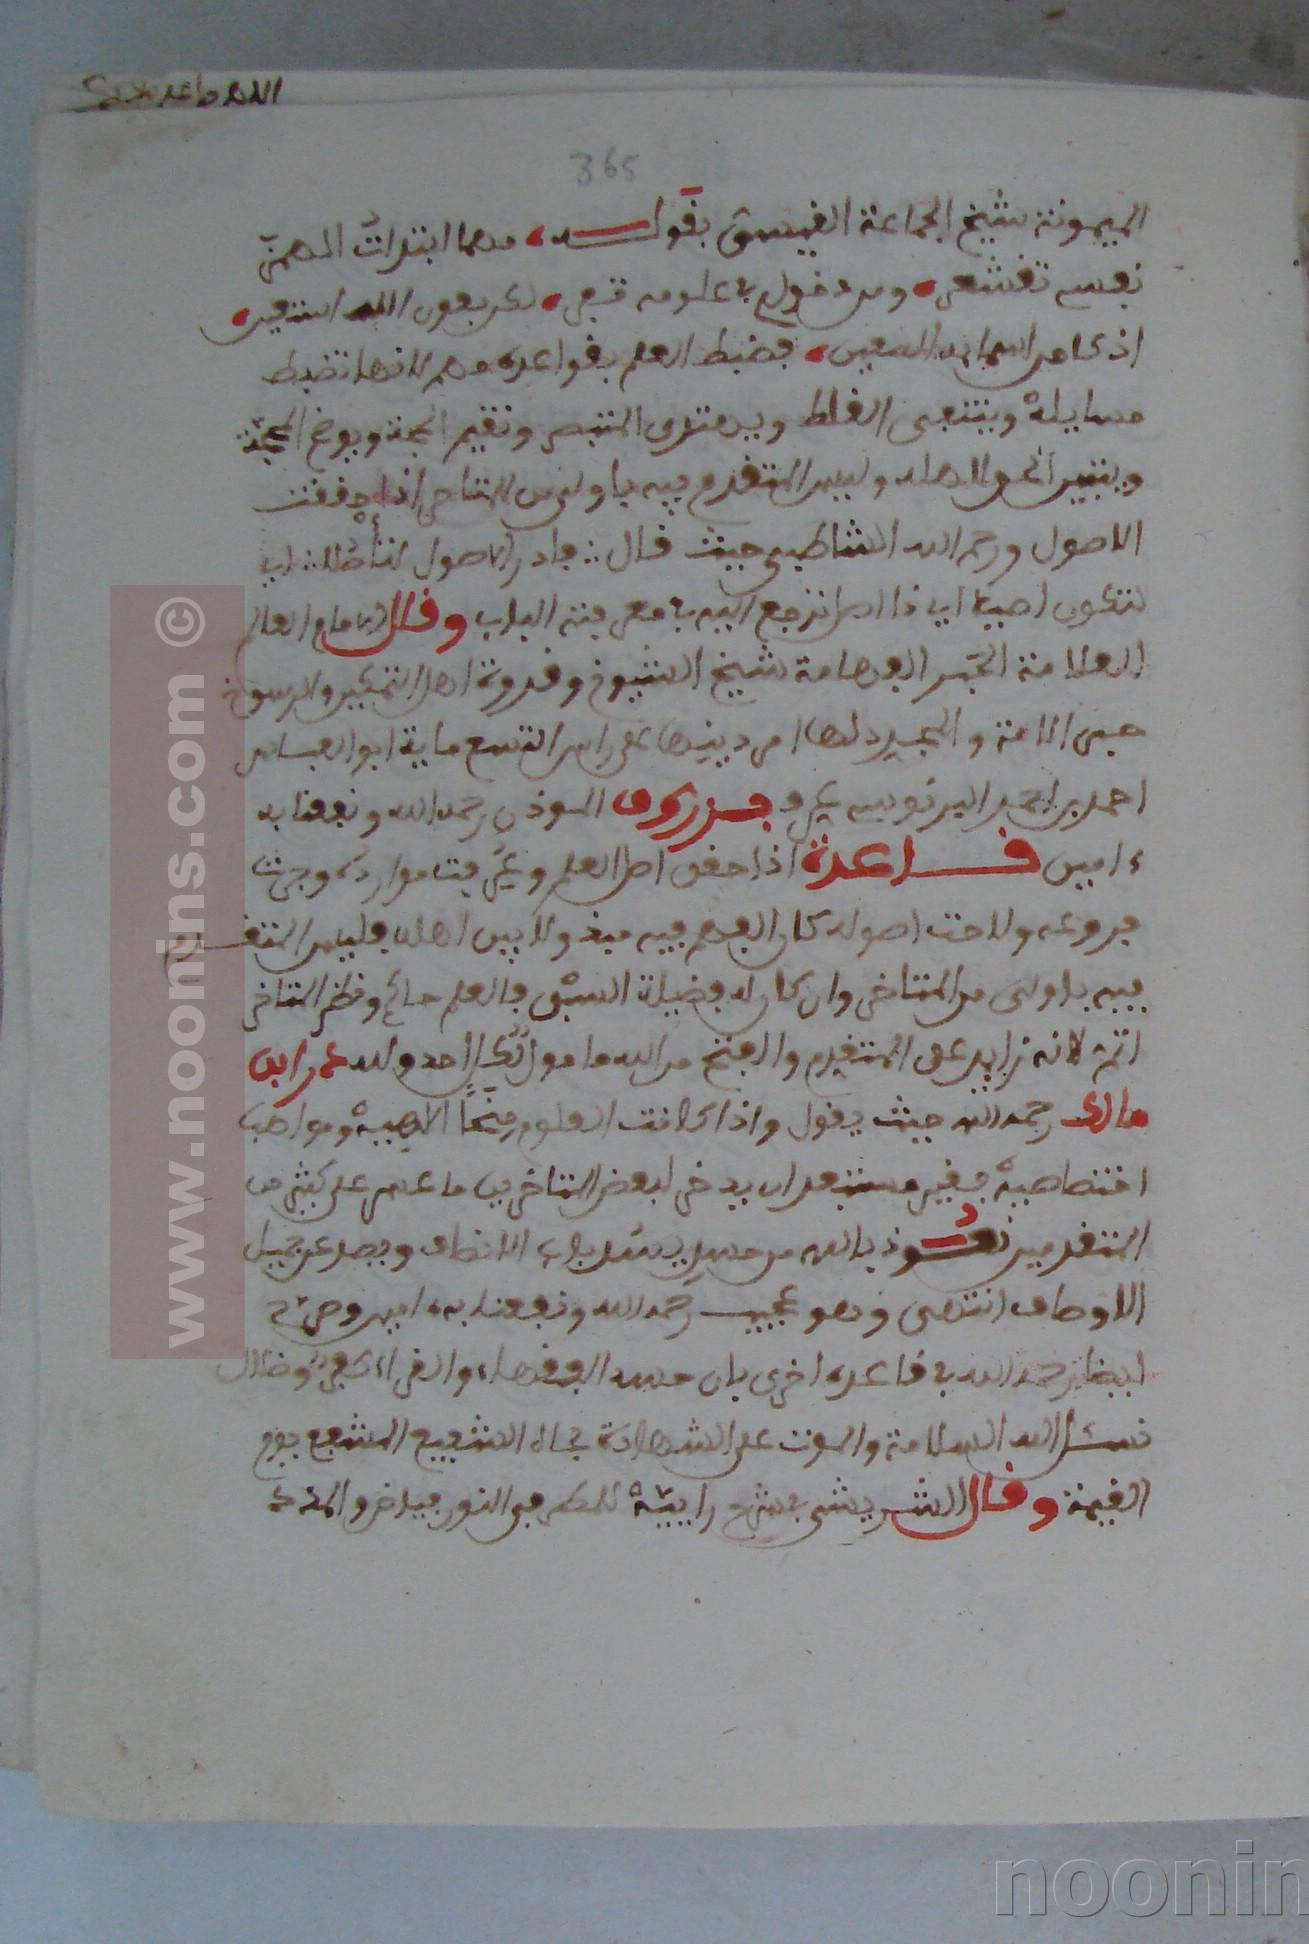 365
الميمونة شيخ الجماعة القيسي بقوله، مهما ابتدات الدهن
نفسي تقشعر، ومن دخولي في علومه تفر، لكن بعون الله استعين،
اذ كل من اعانه المعين، فضبط العلم بقواعده مهم لانها تضبط
مسايله وينتفى الغلط ويهتدى المتبصر وتقيم الحجة ويوضح المحجة
ويتبين الحق لاهله وليس المتقدم فيه باولى من المتاخر اذا حققت
الاصول ورحم الله الشاطبي حيث قال: فادر الاصول لتأصلا: اي
لتكون اصيلا اي ذا اصل ترجع اليه في معرفته الباب وقال الامام العالم
العلامة الحبر الفهامة شيخ الشيوخ وقدوة اهل التمكين والرسوخ
حبر الامة والمجدد لها امر دينها على راس التسع ماية ابو العباس
احمد بن احمد البرنوسي عرف بزروق الموذن رحمه الله ونفعنا به
ءامين قاعدة اذا حقق اصل العلم وعرفت موارده وجرت
فروعه ولاحت اصوله كان الفهم فيه مبذولا بين اهله فليس المتقدم
فيه باولى من المتاخر وان كان له فضيلة السبق فالعلم حاكم ونظر المتاخر
اتم لانه زايد على المتقدم والفتح من الله مامول لكل احد ولله در ابن
مالك رحمه الله حيث يقول واذا كانت العلوم منحا الاهية ومواهبا
اختصاصية فغير مستبعد ان يدخر لبعض المتاخرين ما عسر على كثير من
المتقدمين نعوذ بالله من حسد يسد باب الانصاف ويصد عن جميل
الاوصاف انتهى وهو عجيب رحمه الله ونفعنا به ءامين وصرح
ايضا رحمه الله في قاعدة اخرى بان حسد الفقهاء والقراء كفر وضلال
نسئل الله السلامة والموت على الشهادة بجاه الشفيع المشفع يوم
القيمة وقال الشريشي في شرح رايية
www.noonins.com ©
noonin